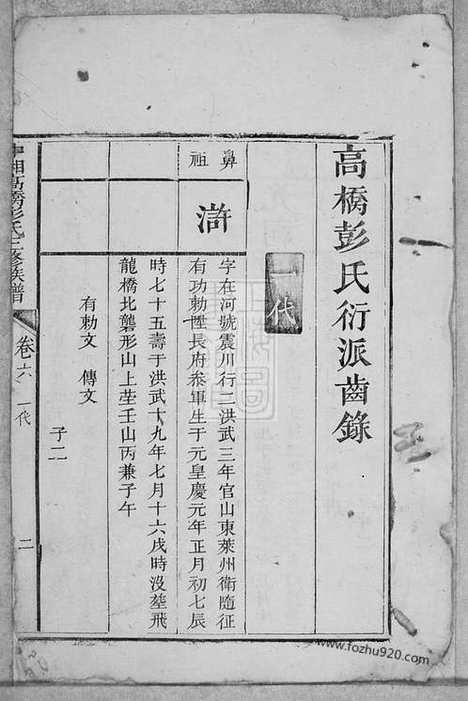 高橋彭氏衍派齒錄
一代
鼻祖
滸
字在河號震川行二洪武三年官山東萊州衛隨征
有功勅陞長府叅軍生于元皇慶元年正月初七辰
時七十五壽于洪武十九年七月十六戌時沒塟飛
龍橋北龑形山上塟壬山丙兼子午
有勅文 傳文
子二
中湘高橋彭氏三修族譜
卷六 一代
二
www.fozhu920.com